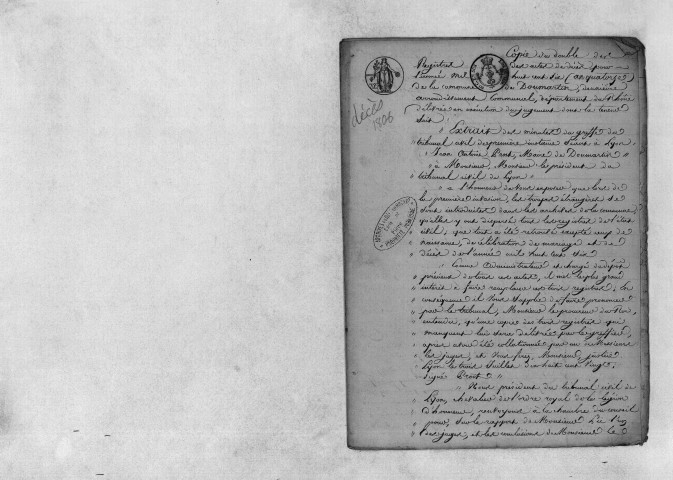 Copie du double des
Registres des actes de décès pour
l'année mil huit cent six (an quatorze)
de la commune de Doumartin, deuxième
arrondissement communal, département du Rhône
délivrée en exécution du jugement dont la teneur
suit
décès
1806
" Extrait des minutes du greffe du
tribunal civil de première instance séant à Lyon
" Jean Antoine Pront, Maire de Doumartin "
" à Monsieur, Monsieur le président du
" tribunal civil de Lyon "
" a l'honneur de vous exposer que lors de
" la première invasion, les troupes étrangères se
" sont introduites dans les archives de la commune
" qu'elles y ont dispersé tous les registres de l'état
" civil, que tout a été retrouvé excepté ceux de
" naissance, de célébration de mariage et de
" décès de l'année mil huit cent six
" Comme administrateur et chargé du dépôt
" précieux de tous ces actes, il est du plus grand
" intérêt à faire remplacer ces trois registres; en
" conséquence il vous supplie de faire prononcer
" par le tribunal, Monsieur le procureur du Roi,
" entendu, qu'une copie des trois registres qui
" manquent lui sera délivrée par le greffier,
" après avoir été collationnée par un de Messieurs
" les juges, et vous ferez, Monsieur, justice
" Lyon le trois Juillet dix huit cent vingt
" signé Pront "
" Nous président du tribunal civil de
" Lyon, chevalier de l'ordre royal de la légion
" d'honneur, renvoyons à la chambre du conseil
" pour, sur le rapport de Monsieur
" juges, et les conclusions de Monsieur le